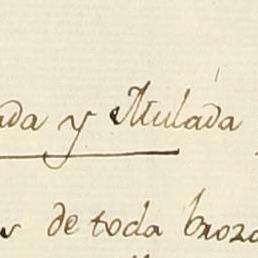 ada y Mulada
s de toda broza